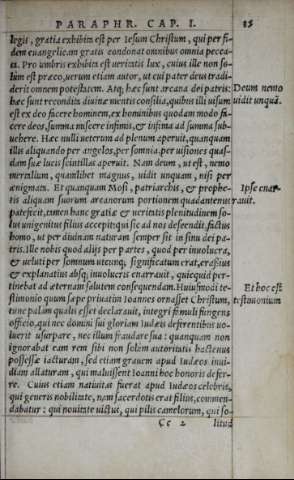 PARAPHR. CAP. I. 85
legis, gratia exhibita est per Iesum Christum, qui per fi-
dem euangelicam gratis condonat omnibus omnia pecca-
ta. Pro umbris exhibita est ueritatis lux, cuius ille non so-
lùm est præco, uerum etiam autor, ut cui pater deus tradi-
derit omnem potestatem. Atq; hæc sunt arcana dei patris:
hæc sunt recondita diuinæ mentis consilia, quibus illi uisum
est ex deo facere hominem, ex hominibus quodam modo fa-
cere deos, summa miscere infimis, & infima ad summa sub-
uehere. Hæc nulli ueterum ad plenum aperuit, quanquam
illis aliquando per angelos, per somnia, per uisiones quas-
dam suæ lucis scintillas aperuit. Nam deum, ut est, nemo
mortalium, quamlibet magnus, uidit unquam, nisi per
ænigmata. Et quanquam Mosi, patriarchis, & prophe-
tis aliquam suorum arcanorum portionem quadantenus
patefecit, tamen hanc gratiæ & ueritatis plenitudinem so-
lus unigenitus filius accepit, qui sic ad nos descendit, factus
homo, ut per diuinam naturam semper sit in sinu dei pa-
tris. Ille nobis quod alijs per partes, quod per inuolucra,
& ueluti per somnium utcunq; significatum erat, crassius
& explanatius absq; inuolucris enarrauit, quicquid per-
tinebat ad æternam salutem consequendam. Huiusmodi te-
stimonio quum sæpe priuatim Ioannes ornasset Christum,
tunc palàm qualis esset declarauit, integri simul fungens
officio, qui nec domini sui gloriam Iudæis deferentibus uo-
luerit usurpare, nec illum fraudare sua: quanquam non
ignorabat eam rem sibi non solùm autoritatis hactenus
possessæ iacturam, sed etiam grauem apud Iudæos inui-
diam allaturam, qui maluissent Ioanni hoc honoris defer-
re. Cuius etiam natiuitas fuerat apud Iudæos celebris,
qui generis nobilitate, nam sacerdotis erat filius, commen-
dabatur: qui nouitate uictus, qui pilis camelorum, qui so-
Cc 2 litud
Deum nemo
uidit unquā.
Ipse enar-
rauit.
Et hoc est
testimonium